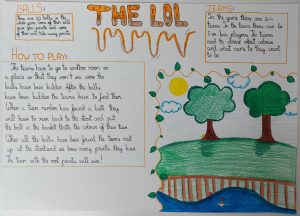 BALLS:
THE LOL
TEAMS:
There are 20 balls in the
whole game some of them will
give you points and some
of them will take away points.
In the game there are 2-4
teams. In the teams there can be
5 or less players. The teams
need to choose what colour
and what name to they want
to be.
HOW TO PLAY:
The teams have to go to another room or
a place so that they won't see where the
balls have been hidden. After the balls
have been hidden the teams have to find them.
When a team member has found a ball they
will have to run back to the start and put
the ball in the basket that's the colour of their team.
When all the balls have been found the teams meet
up at the start and see how many points they have.
The team with the most points will win!